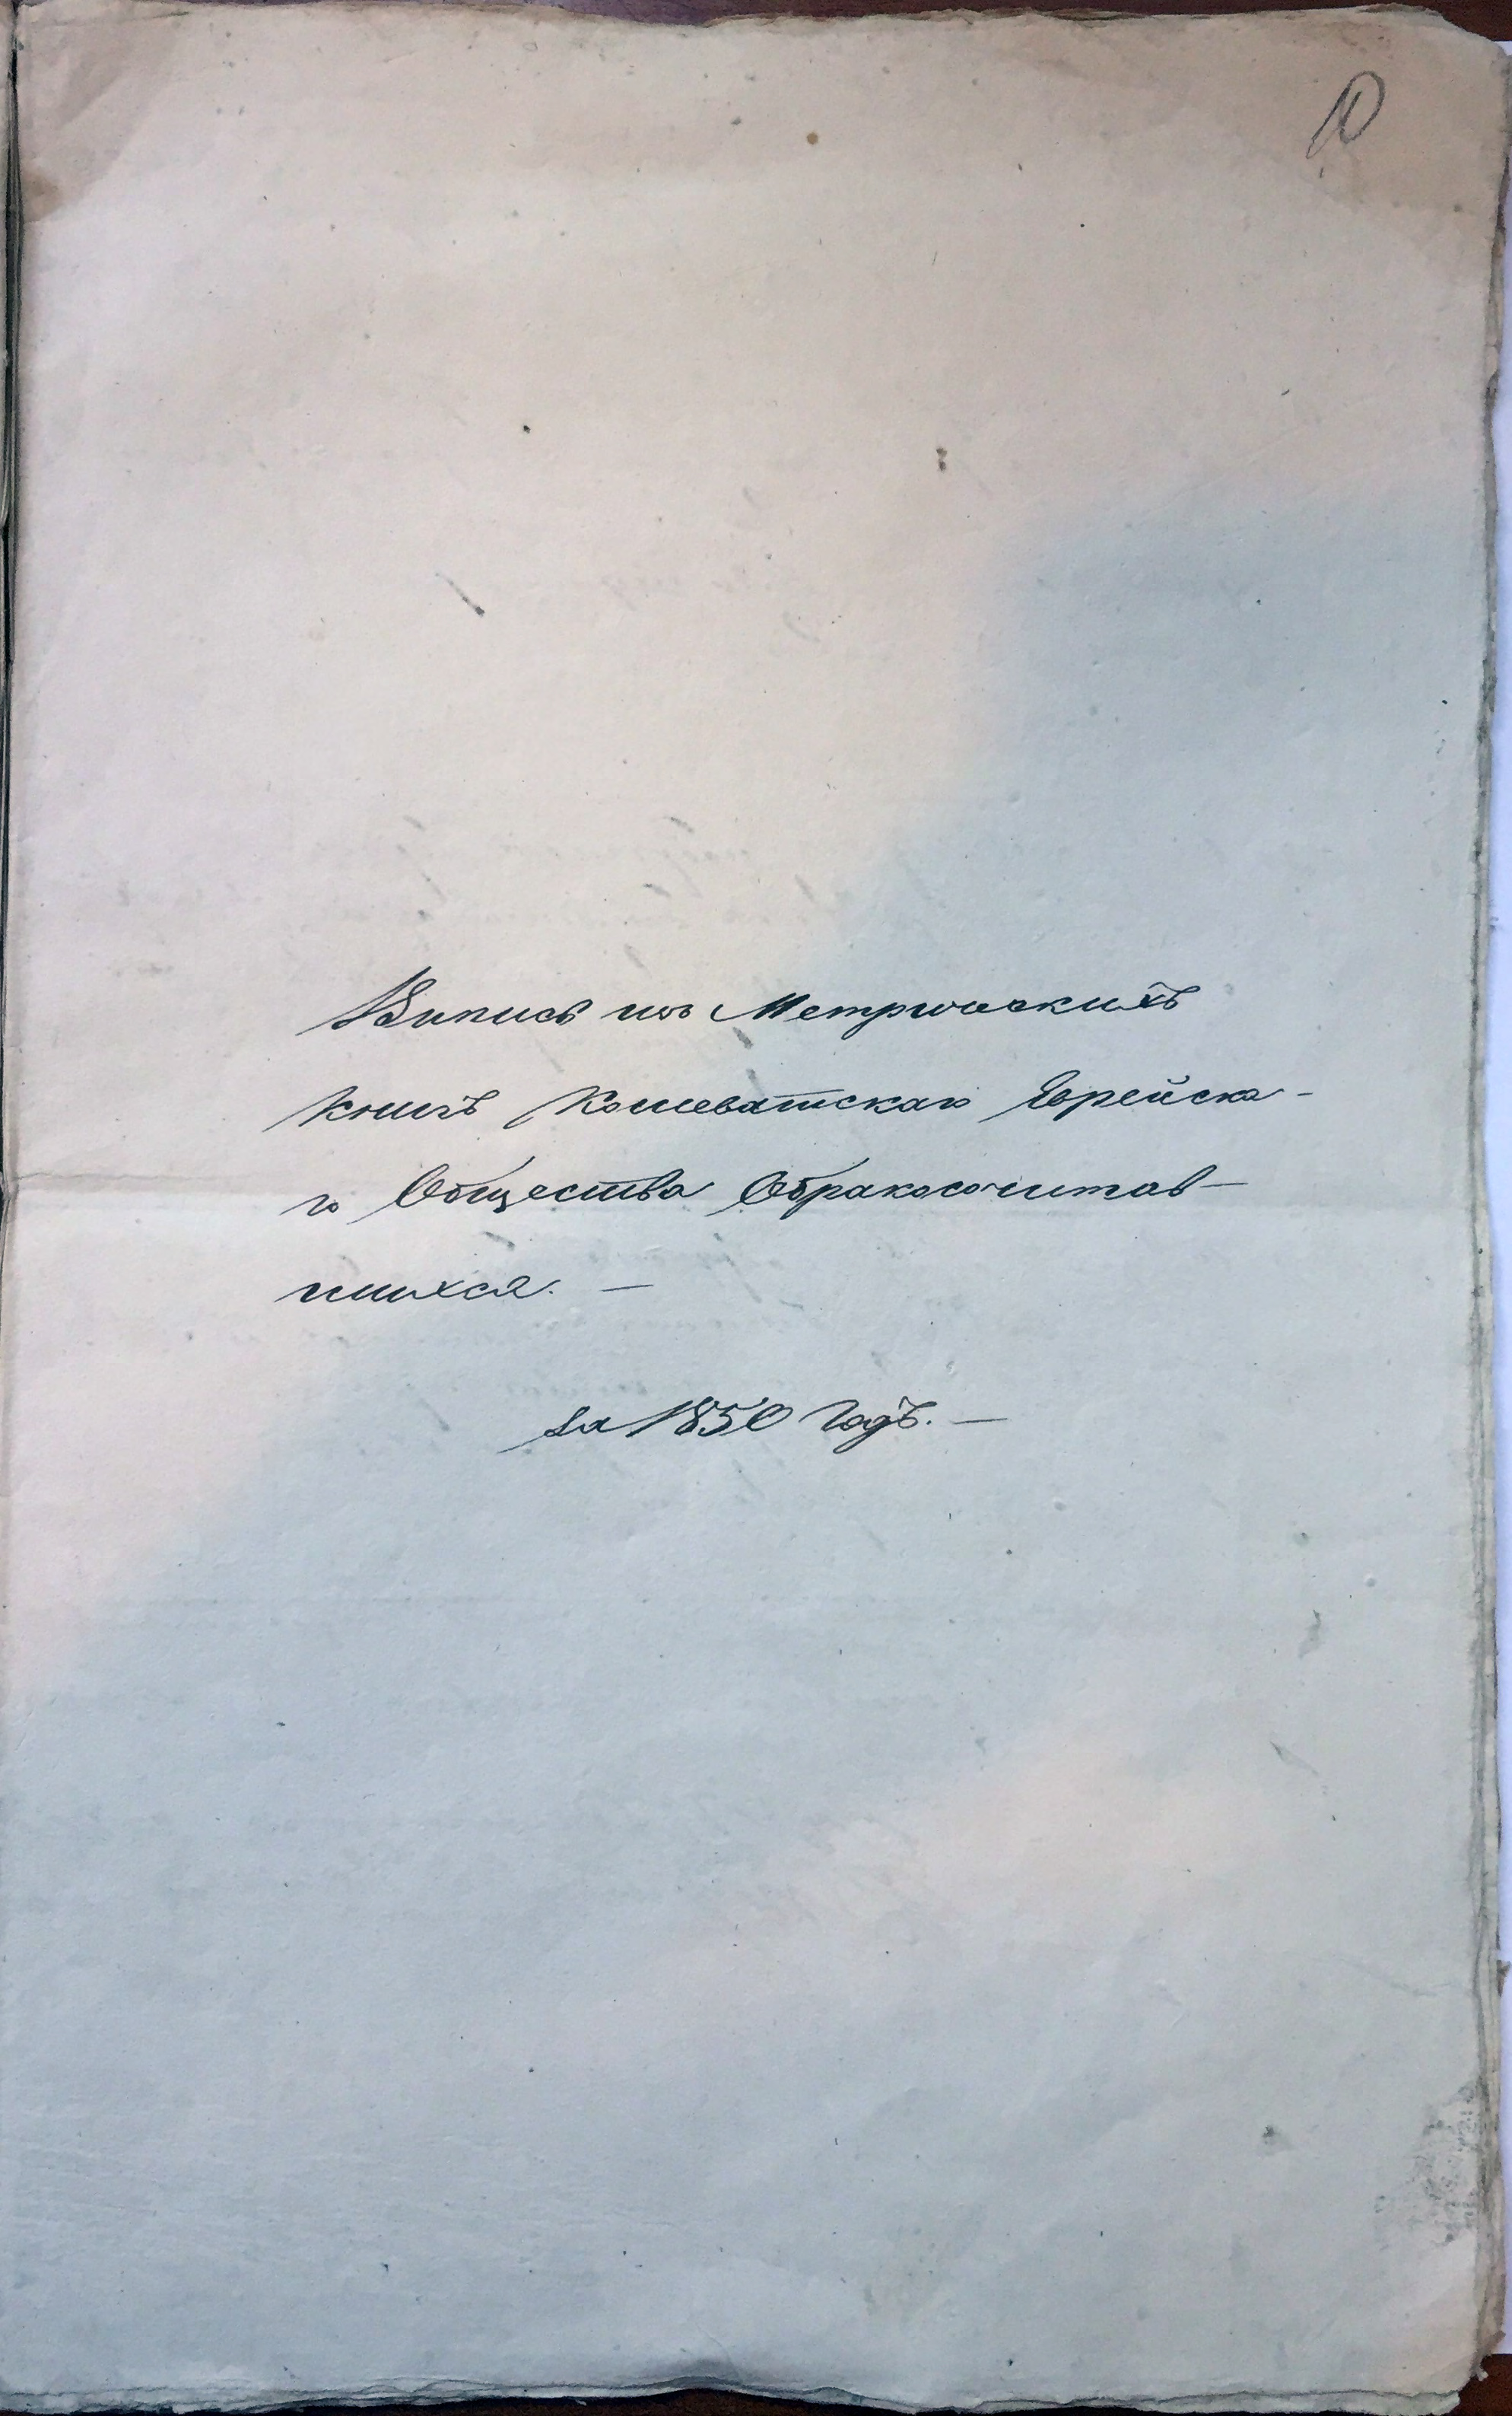 10
Выпись изъ Метрическихъ
книгъ Кошеватскаго Еврейска-
го Общества Обракосочитав-
шихся. —
За 1850 годъ. —